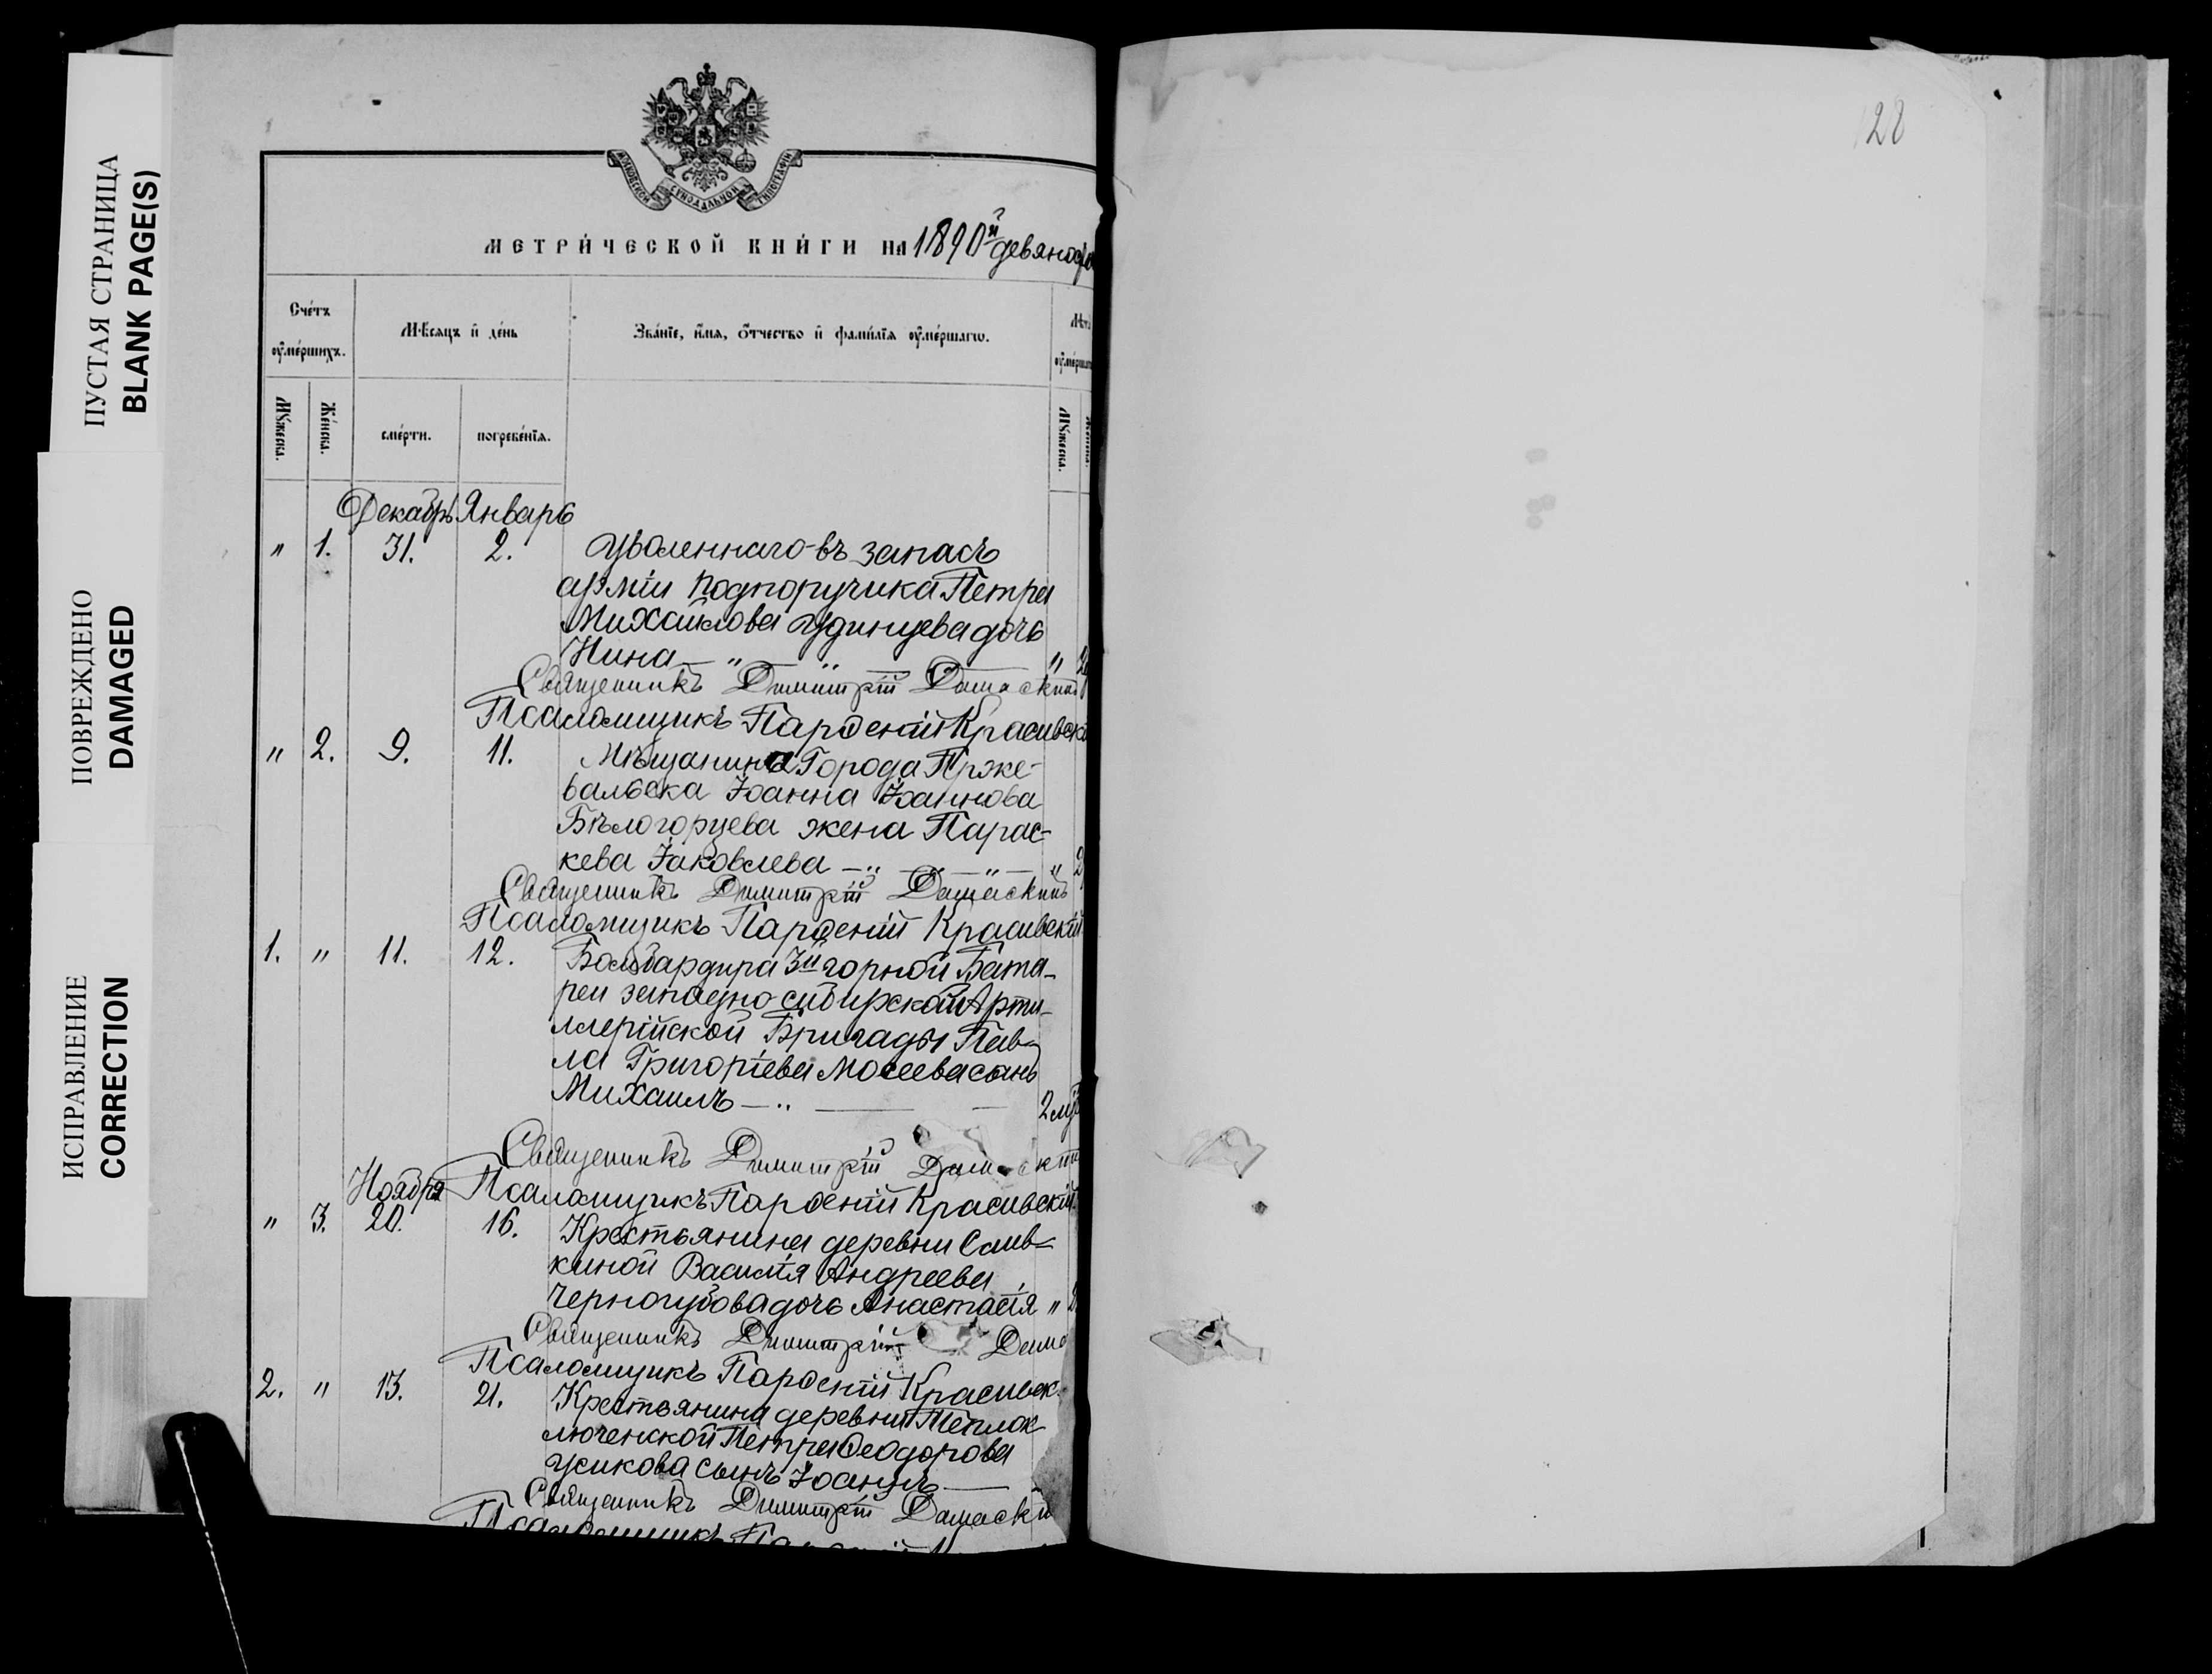 ПУСТАЯ СТРАНИЦА
BLANK PAGE(S)
ПОВРЕЖДЕНО
DAMAGED
ИСПРАВЛЕНИЕ
CORRECTION
МОСКОВСКОЙ СѴНОДАЛЬНОЙ ТИПОГРАФІИ
128
МЕТРИ́ЧЕСКОЙ КНИ́ГИ НА 1890й девяносто
Сче́тъ ᲂу҆ме́ршихъ.
Мѣ́сяцъ и҆ де́нь
Зва́нїе, и҆́мѧ, ѻ҆́тчество и҆ фами́лїѧ ᲂу҆ме́ршагѡ.
Мꙋ́жеска.
Же́нска.
сме́рти.
погребе́нїѧ.
Мꙋ́жеска.
Декабрь Январь
" 1. 31. 2. Уволеннаго въ запасъ
арміи подпоручика Петра
Михайлова Удинцева дочь
Нина — " — " — "
Священникъ Димитрій Дамаскинъ
Псаломщикъ Парѳеній Красивскі
" 2. 9. 11. Мѣщанина Города Прже-
вальска Іоанна Іоаннова
Бѣлогорцева жена Парас-
кева Іаковлева — " — " — "
Священникъ Димитрій Дамаскинъ
Псаломщикъ Парѳеній Красивскій
1. " 11. 12. Бомбардира 3й горной Бата-
реи западно-сибирской Арти-
ллерійской Бригады Пав-
ла Григоріева Мосеева сынъ
Михаилъ — " —
Священникъ Димитрій
Ноября Псаломщикъ Парѳеній Красивскій
" 3. 20. 16. Крестьянина деревни Слив-
киной Василія Андреева
Черногубова дочь Анастасія "
Священникъ Димитрій Дама
Псаломщикъ Парѳеній Красивск
2. " 13. 21. Крестьянина деревни Теплок-
люченской Петра Ѳеодорова
Усикова сынъ Іоаннъ —
Священникъ Димитрій Дамаски
Псаломщикъ